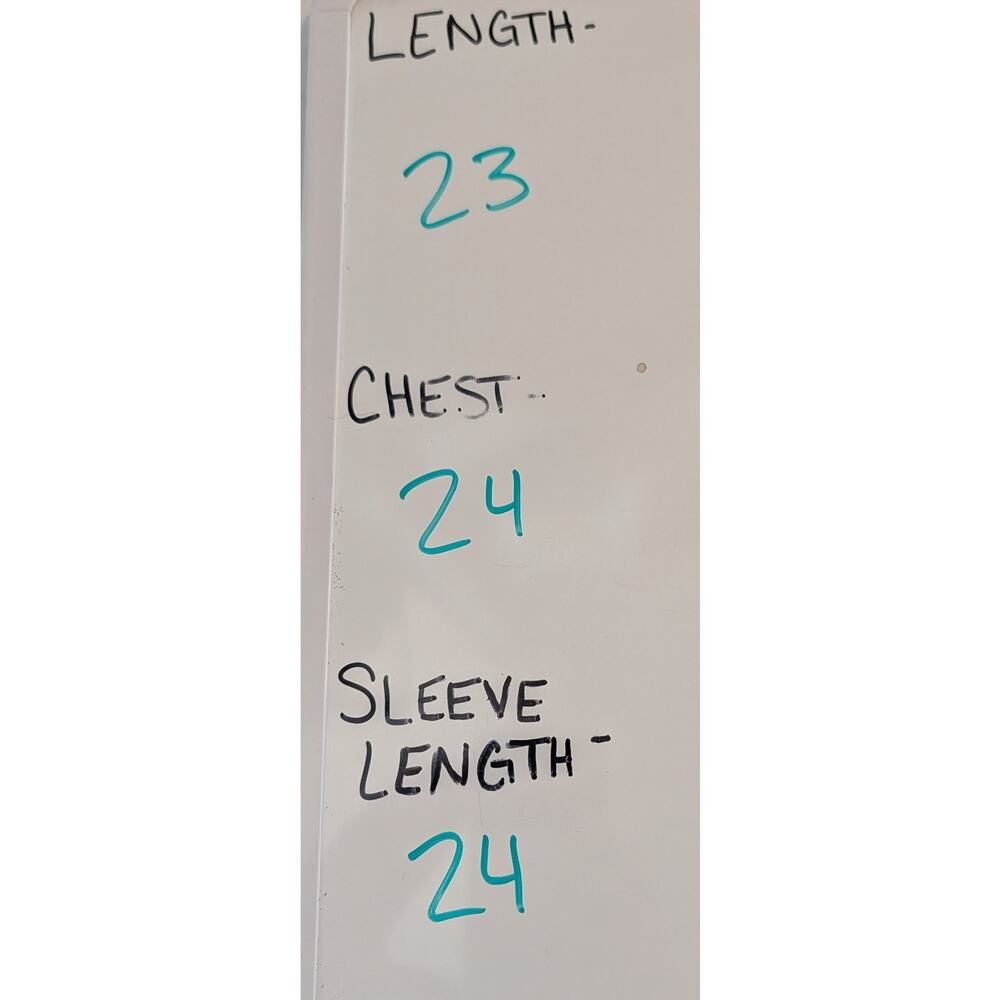 LENGTH-
23
CHEST-
24
SLEEVE
LENGTH-
24